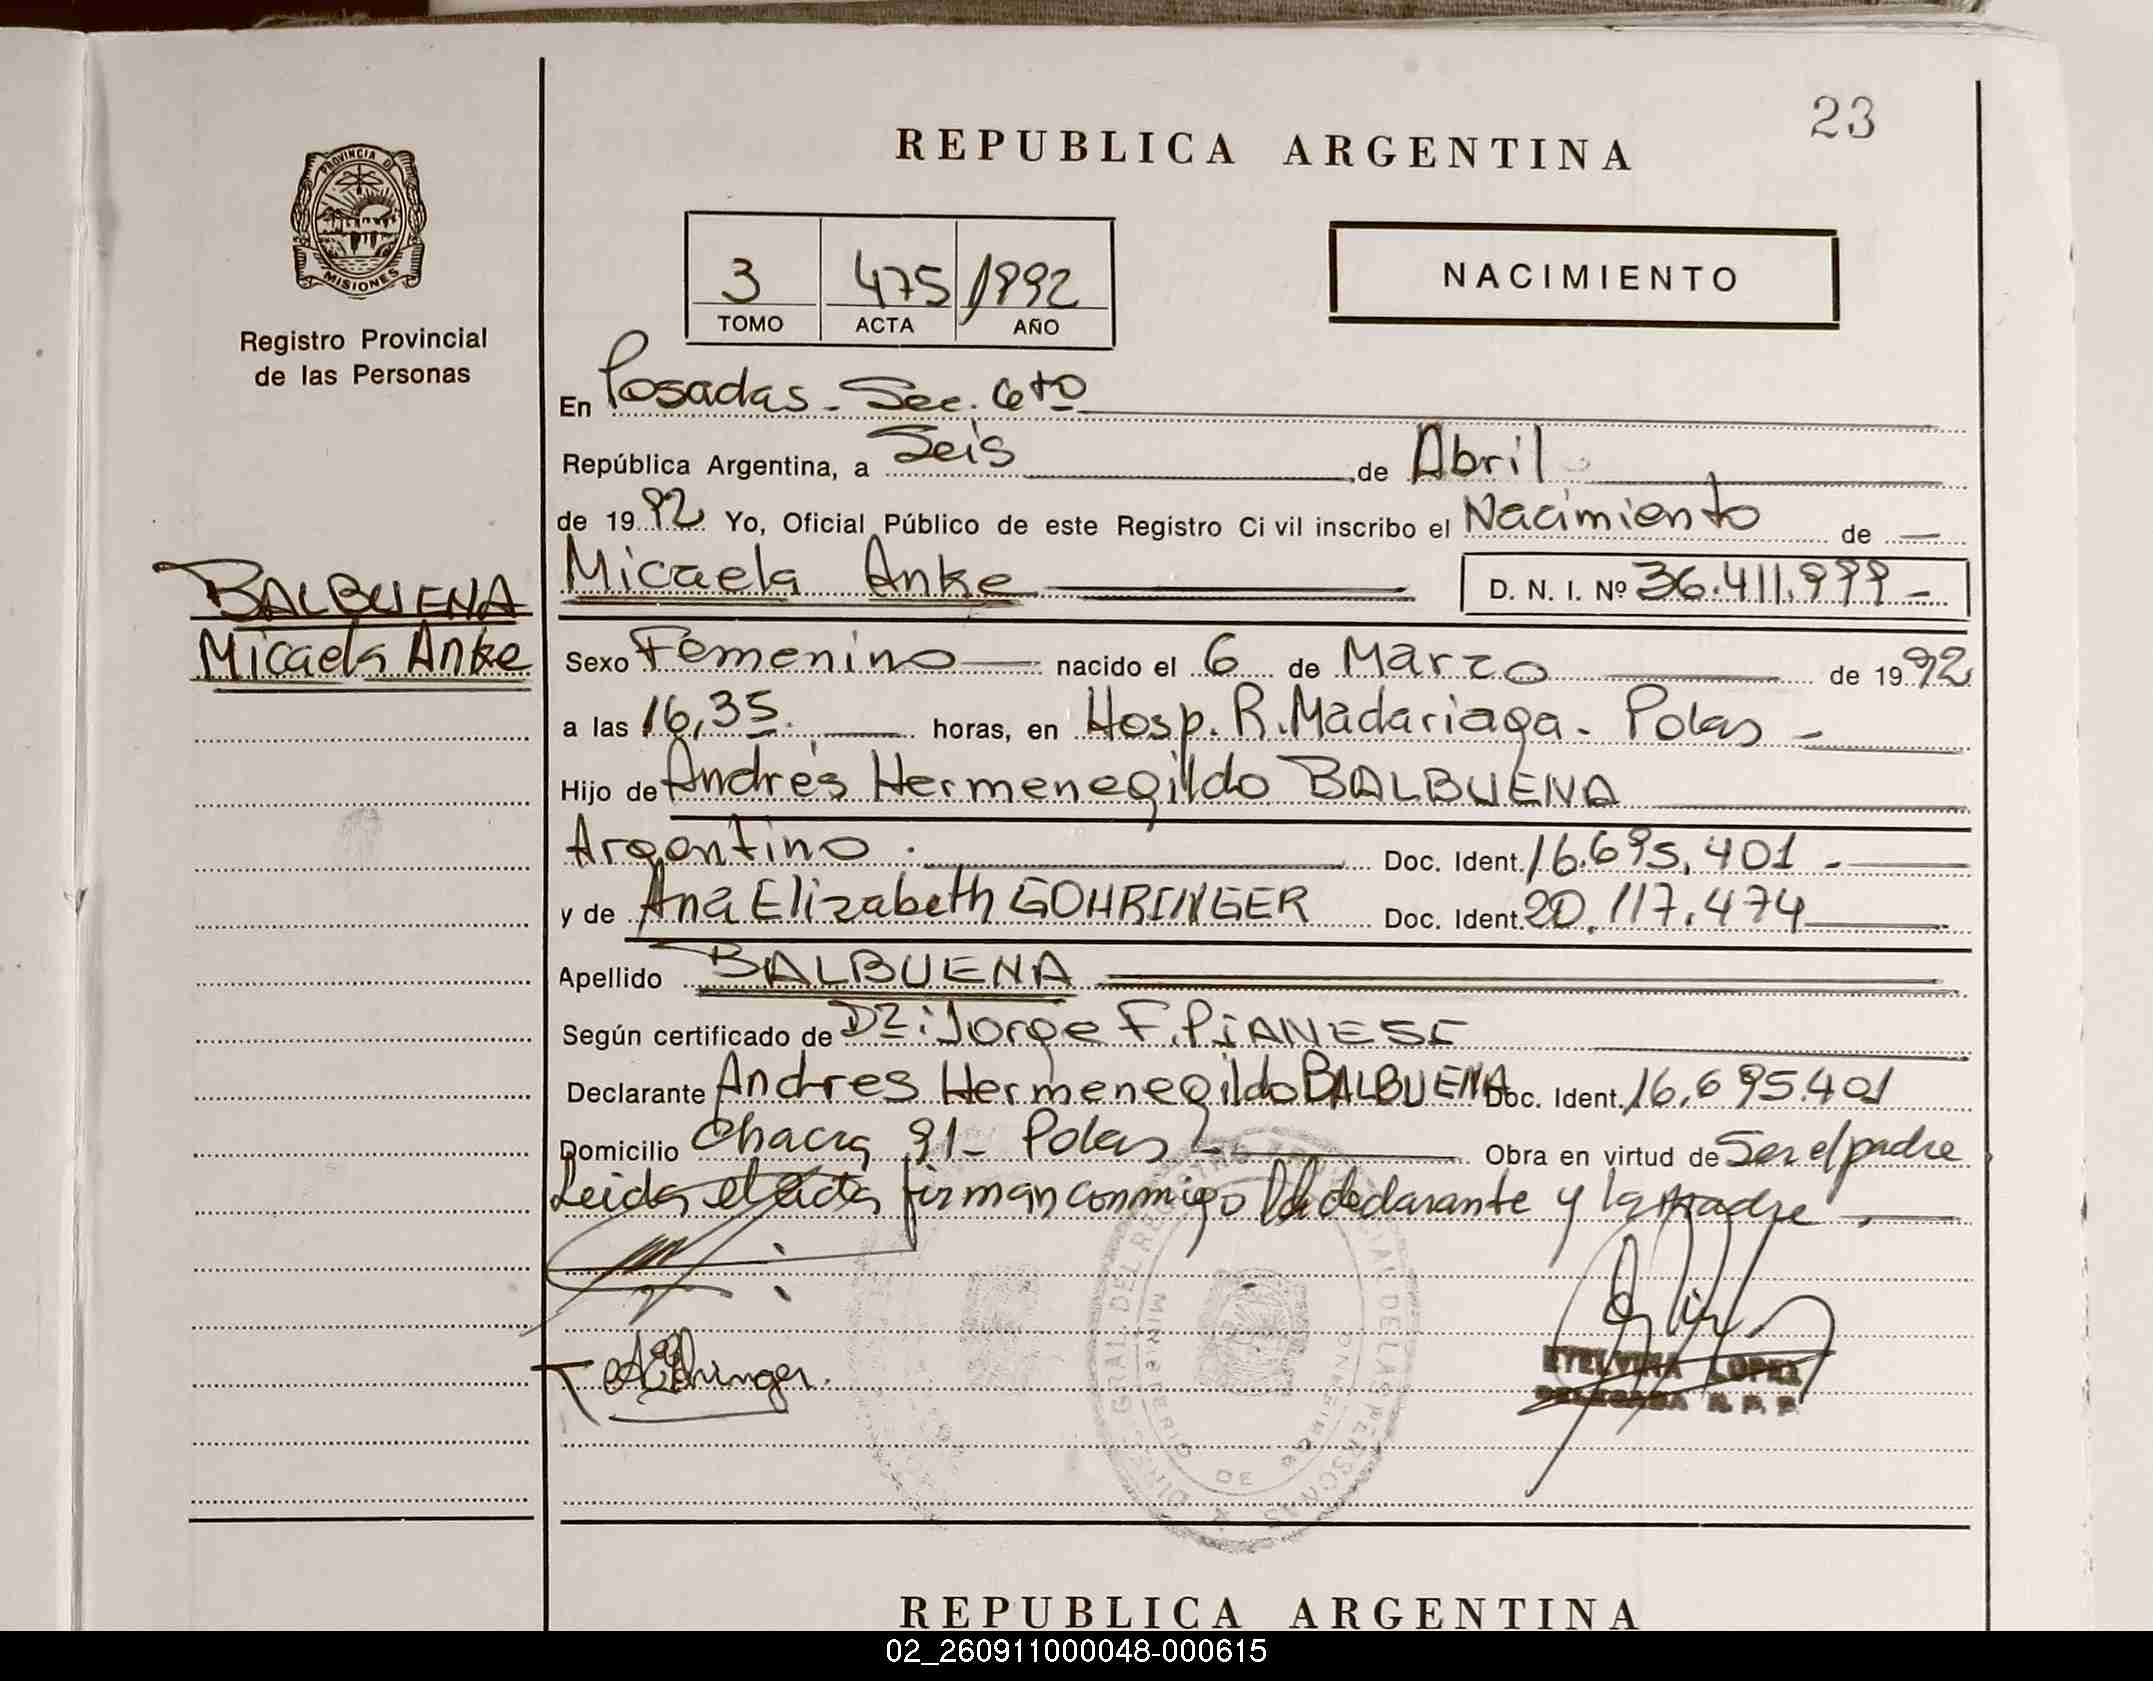 23
REPUBLICA ARGENTINA
PROVINCIA DE
MISIONES
Registro Provincial
de las Personas
3 475 1992
TOMO ACTA AÑO
NACIMIENTO
En Posadas - Sec. 6to
República Argentina, a Seis de Abril
de 1992 Yo, Oficial Público de este Registro Civil inscribo el Nacimiento de —
Micaela Anke D. N. I. Nº 36.411.999 -
BALBUENA
Micaela Anke
Sexo Femenino nacido el 6 de Marzo de 1992
a las 16,35. horas, en Hosp. R. Madariaga - Pdas -
Hijo de Andrés Hermenegildo BALBUENA
Argentino. Doc. Ident. 16.695.401 -
y de Ana Elizabeth GOHRINGER Doc. Ident. 20.117.474
Apellido BALBUENA
Según certificado de Dr: Jorge F. PIANESE
Declarante Andres Hermenegildo BALBUENA Doc. Ident. 16.695.401
Domicilio Chacra 91 - Pdas Obra en virtud de Ser el padre
Leida el acta firman conmigo el declarante y la madre
DIREC. GRAL. DEL REGISTRO PROVINCIAL DE LAS PERSONAS
MINISTERIO DE GOBIERNO
ETELVINA LOPEZ
DELEGADA R. P. P.
REPUBLICA ARGENTINA
02_260911000048-000615